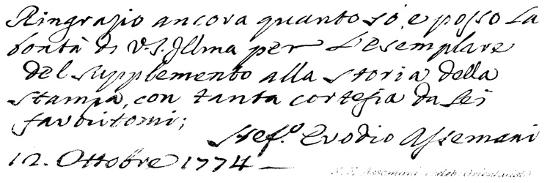 Ringrazio ancora quanto sò, e posso la
bontà di V.S. Illma per l'esemplare
del supplemento alla storia della
stampa, con tanta cortesia da Lei
favoritomi;
Stef.º Evodio Assemani
12. Ottobre 1774